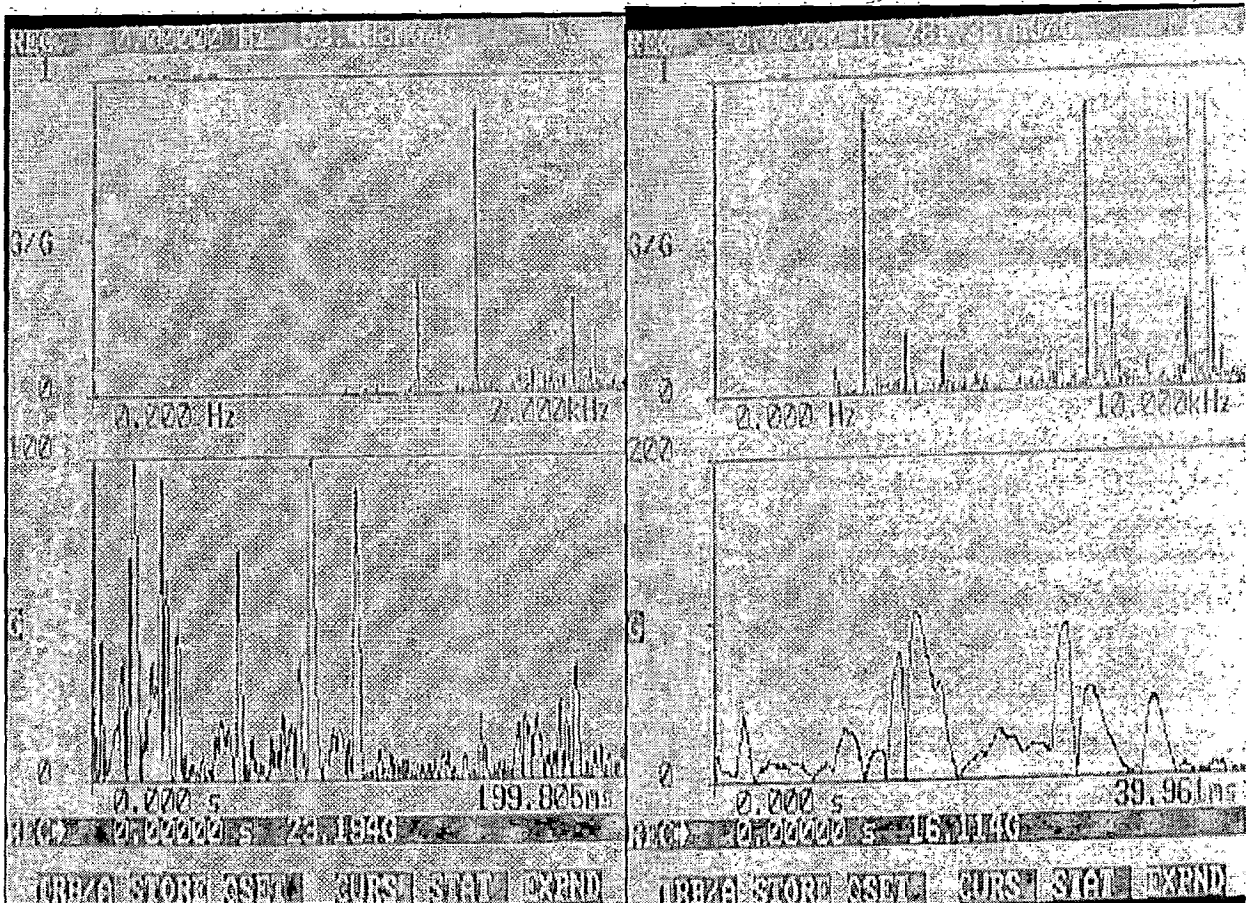 REC 0.00000 Hz
1
G/G
0
0.000 Hz 2.000kHz
100
G
0
0.000 s 199.805ms
REC▶ 0.00000 s 23.194G
TRB/A STORE CSET CURS STAT EXPND
REC 0.00000 Hz
1
G/G
0
0.000 Hz 10.000kHz
200
G
0
0.000 s 39.961ms
REC▶ 0.00000 s 16.114G
TRB/A STORE CSET CURS STAT EXPND